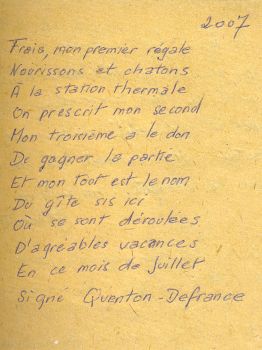 2007
Frais, mon premier régale
Nourissons et chatons
À la station thermale
On prescrit mon second
Mon troisième a le don
De gagner la partie
Et mon tout est le nom
Du gîte sis ici
Où se sont déroulées
D'agréables vacances
En ce mois de Juillet
Signé Quenton-Defrance